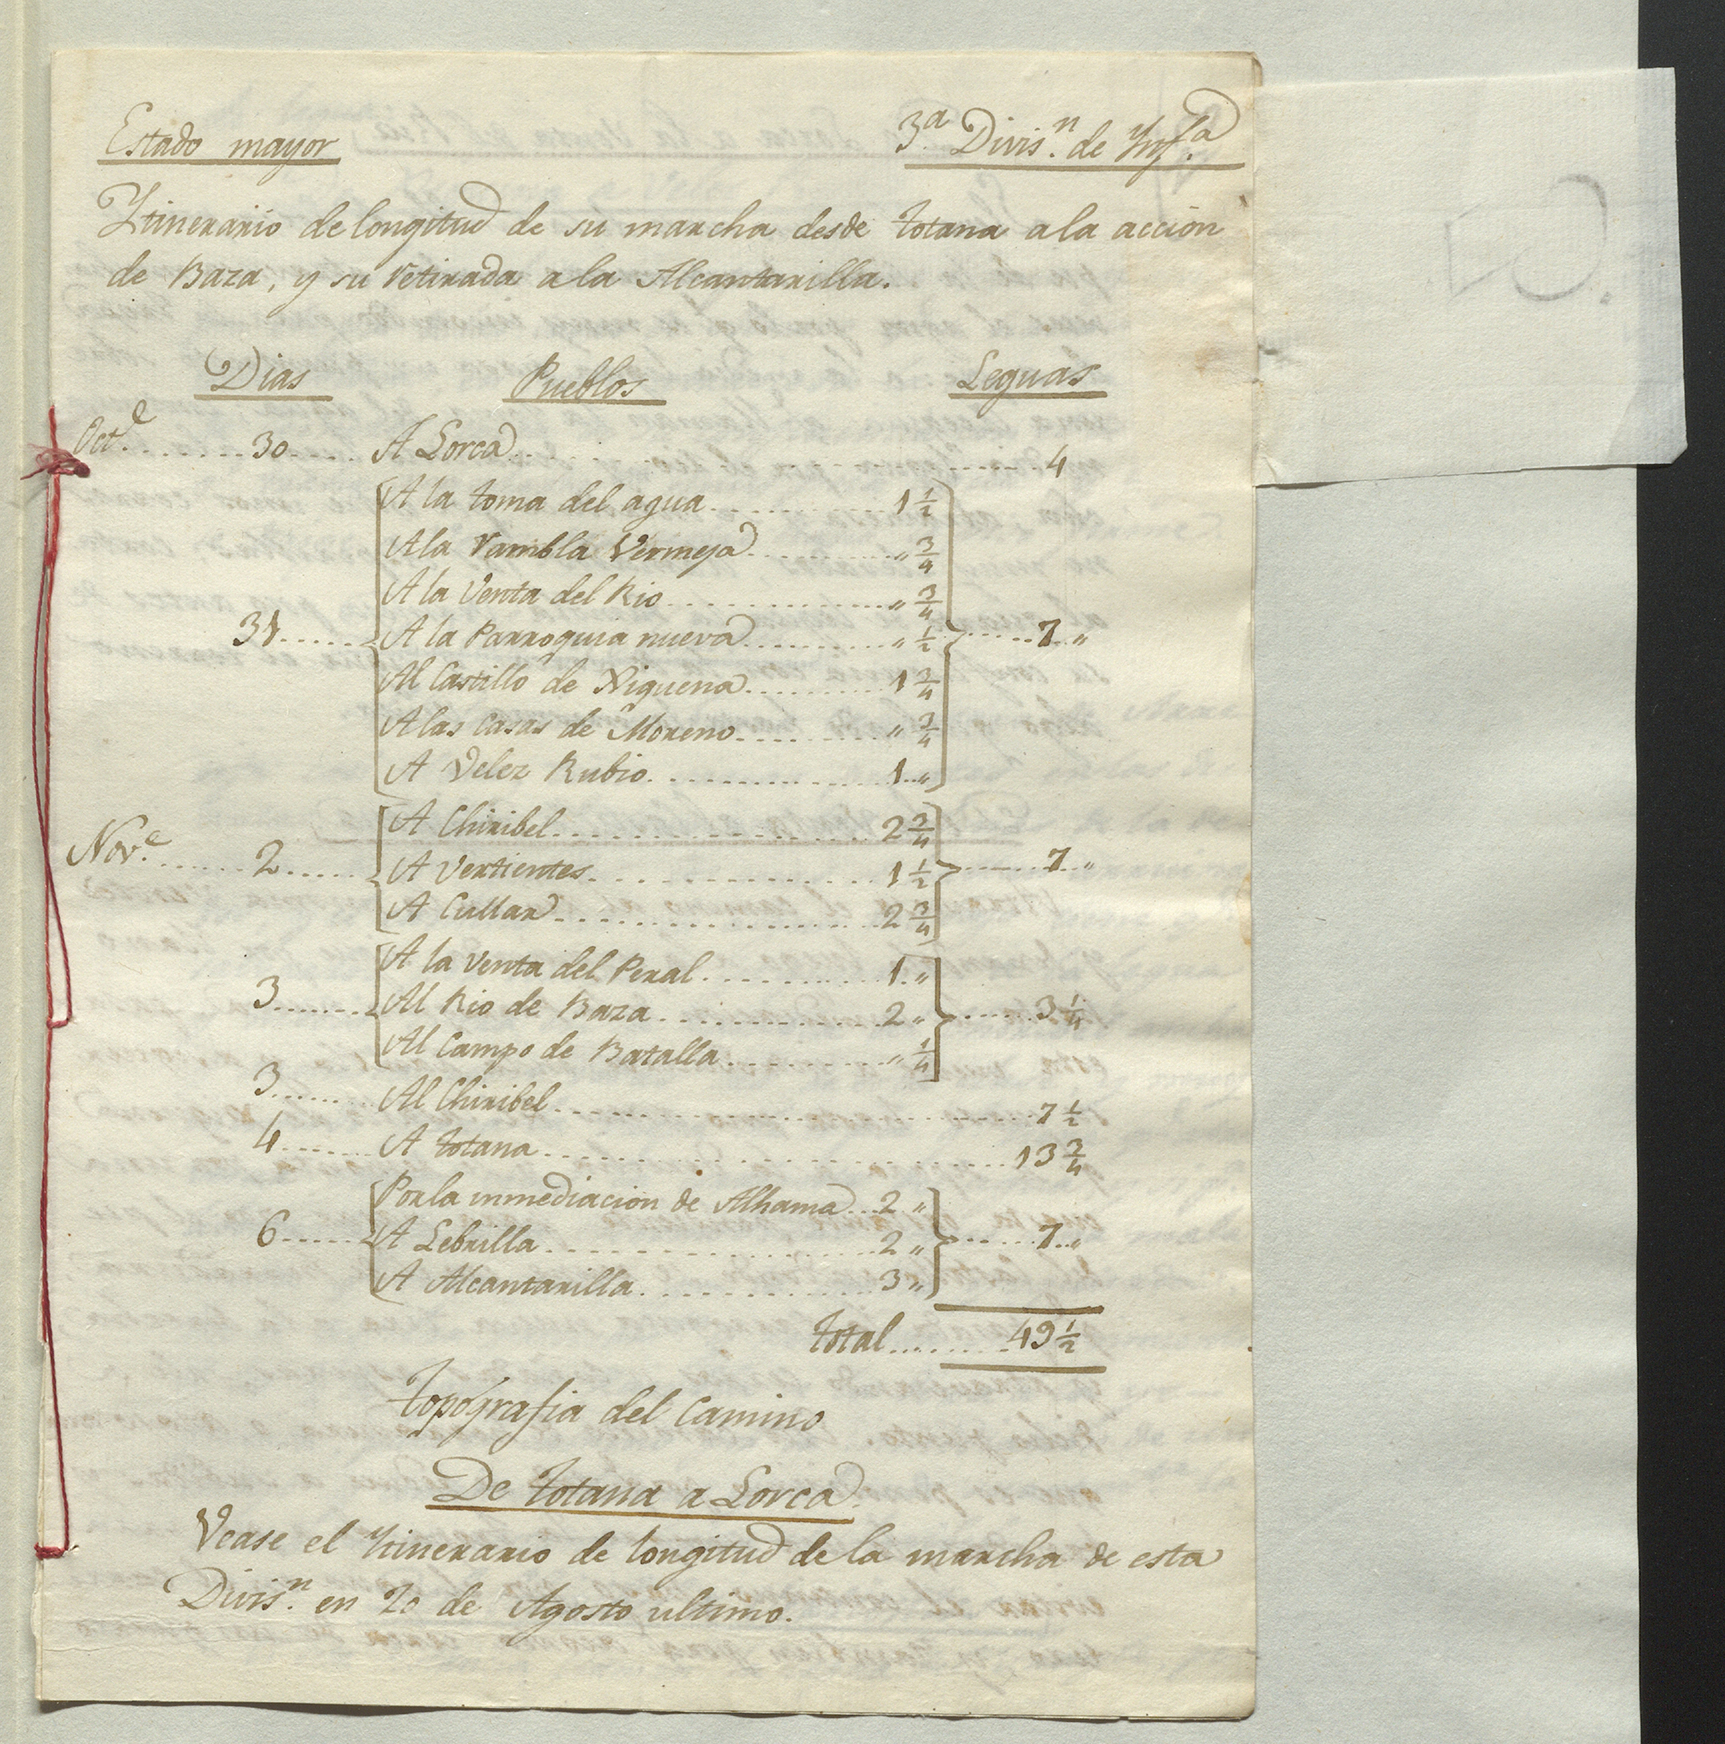 Estado mayor 3.ª Divis.n de Ynf.a
Ytinerario de longitud de su marcha desde totana a la accion
de Baza, y su retirada a la Alcantarilla.
Dias Pueblos Leguas
Oct.e ....... 30 .... A Lorca ............ 4
A la toma del agua .......... 1 1/2
A la rambla Vermeja .......... " 3/4
A la Venta del Rio .......... " 3/4
31 ...... A la Parroquia nueva .......... " 1/2 ...... 7 "
Al Castillo de Xiquena .......... 1 3/4
A las casas de Moreno .......... " 3/4
A Velez Rubio .......... 1 "
A Chiribel .......... 2 3/4
Nov.e ...... 2 ..... A Vertientes .......... 1 1/2 ...... 7 "
A Cullar .......... 2 3/4
A la Venta del Peral .......... 1 "
3 ....... Al Rio de Baza .......... 2 " ...... 3 1/4
Al Campo de Batalla .......... " 1/4
3 ....... Al Chiribel .......... 7 1/2
4 ...... A totana .......... 13 3/4
Por la inmediacion de Alhama ... 2 "
6 ..... A Lebrilla .......... 2 " ...... 7 "
A Alcantarilla .......... 3 "
total ........ 49 1/2
topografia del camino
De totana a Lorca.
Vease el Ytinerario de longitud de la marcha de esta
Divis.n en 20 de Agosto ultimo.